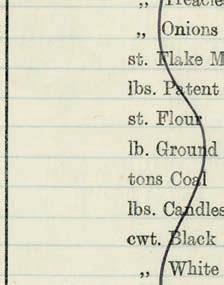 „ Treacle
„ Onions
st. Flake M
lbs. Patent
st. Flour
lb. Ground
tons Coal
lbs. Candles
cwt. Black
„ White